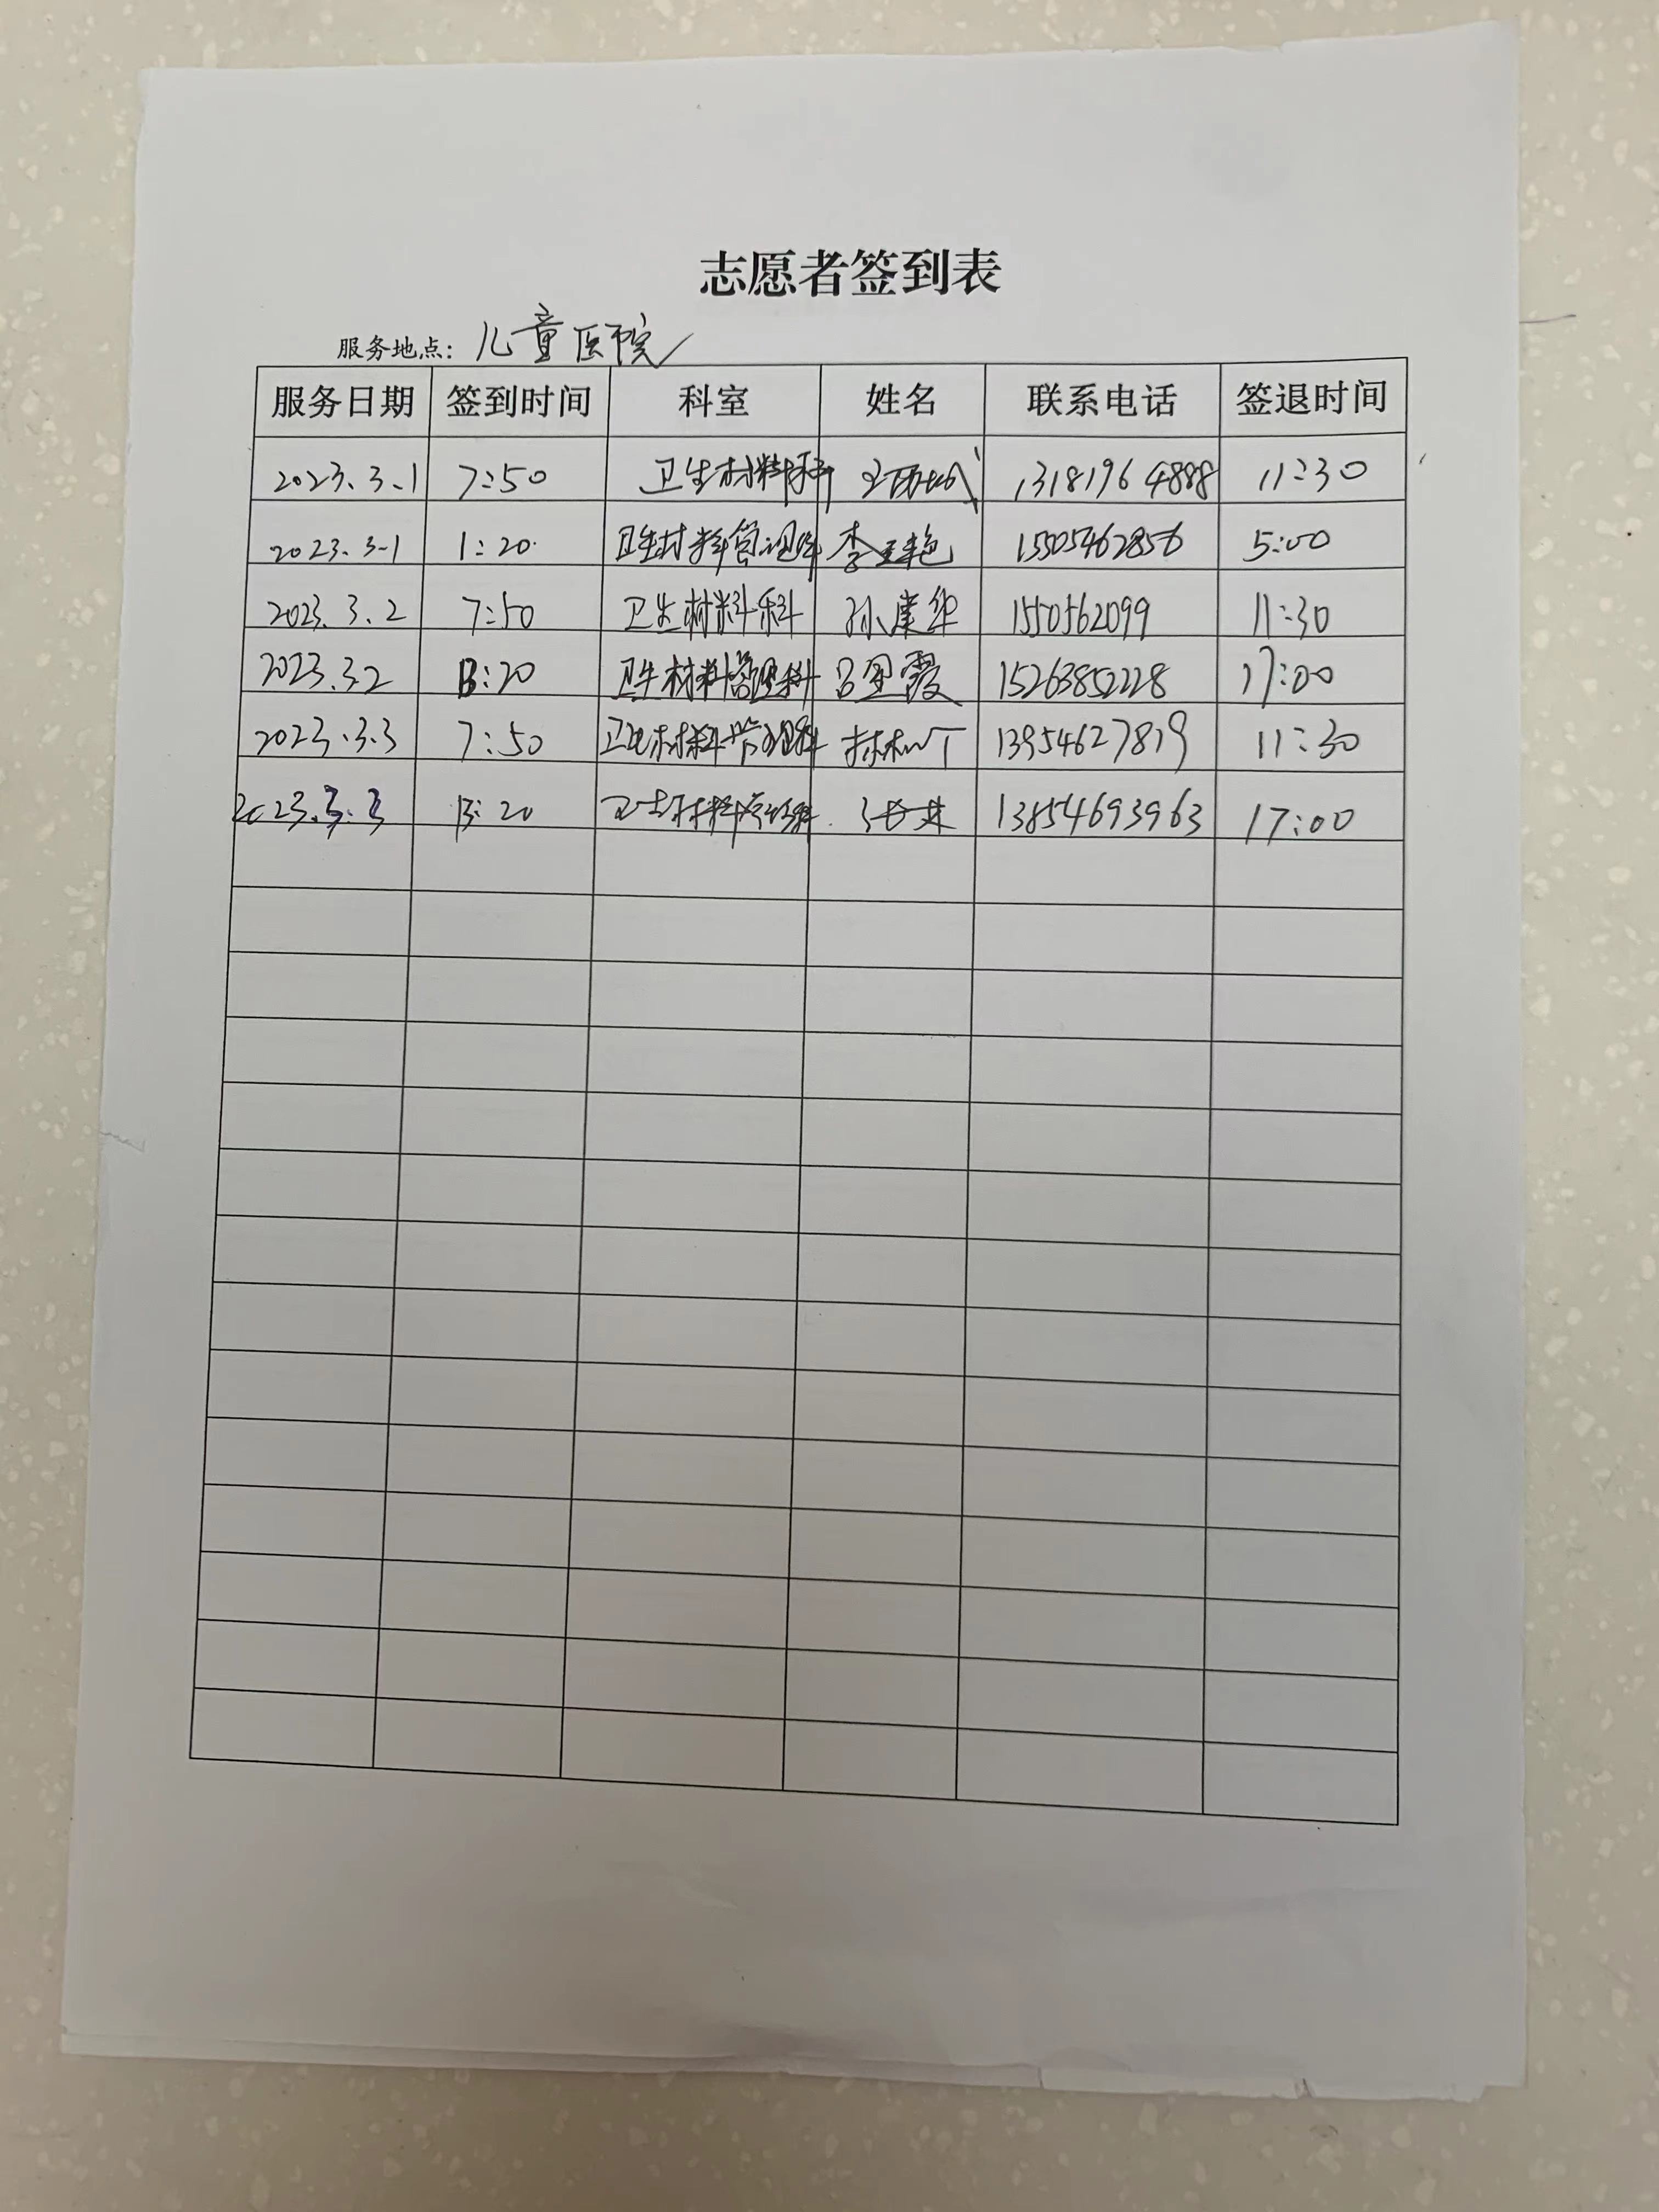 志愿者签到表
服务地点：儿童医院
服务日期 签到时间 科室 姓名 联系电话 签退时间
2023.3.1 7:50 卫生材料科 13181964888 11:30
2023.3.1 1:20 卫生材料管理科 李玉艳 15505462856 5:00
2023.3.2 7:50 卫生材料科 孙建华 1550562099 11:30
2023.3.2 13:20 卫生材料管理科 霞 15263852228 17:00
2023.3.3 7:50 卫生材料管理科 13954627819 11:30
2023.3.3 13:20 卫生材料管理科 13854693963 17:00